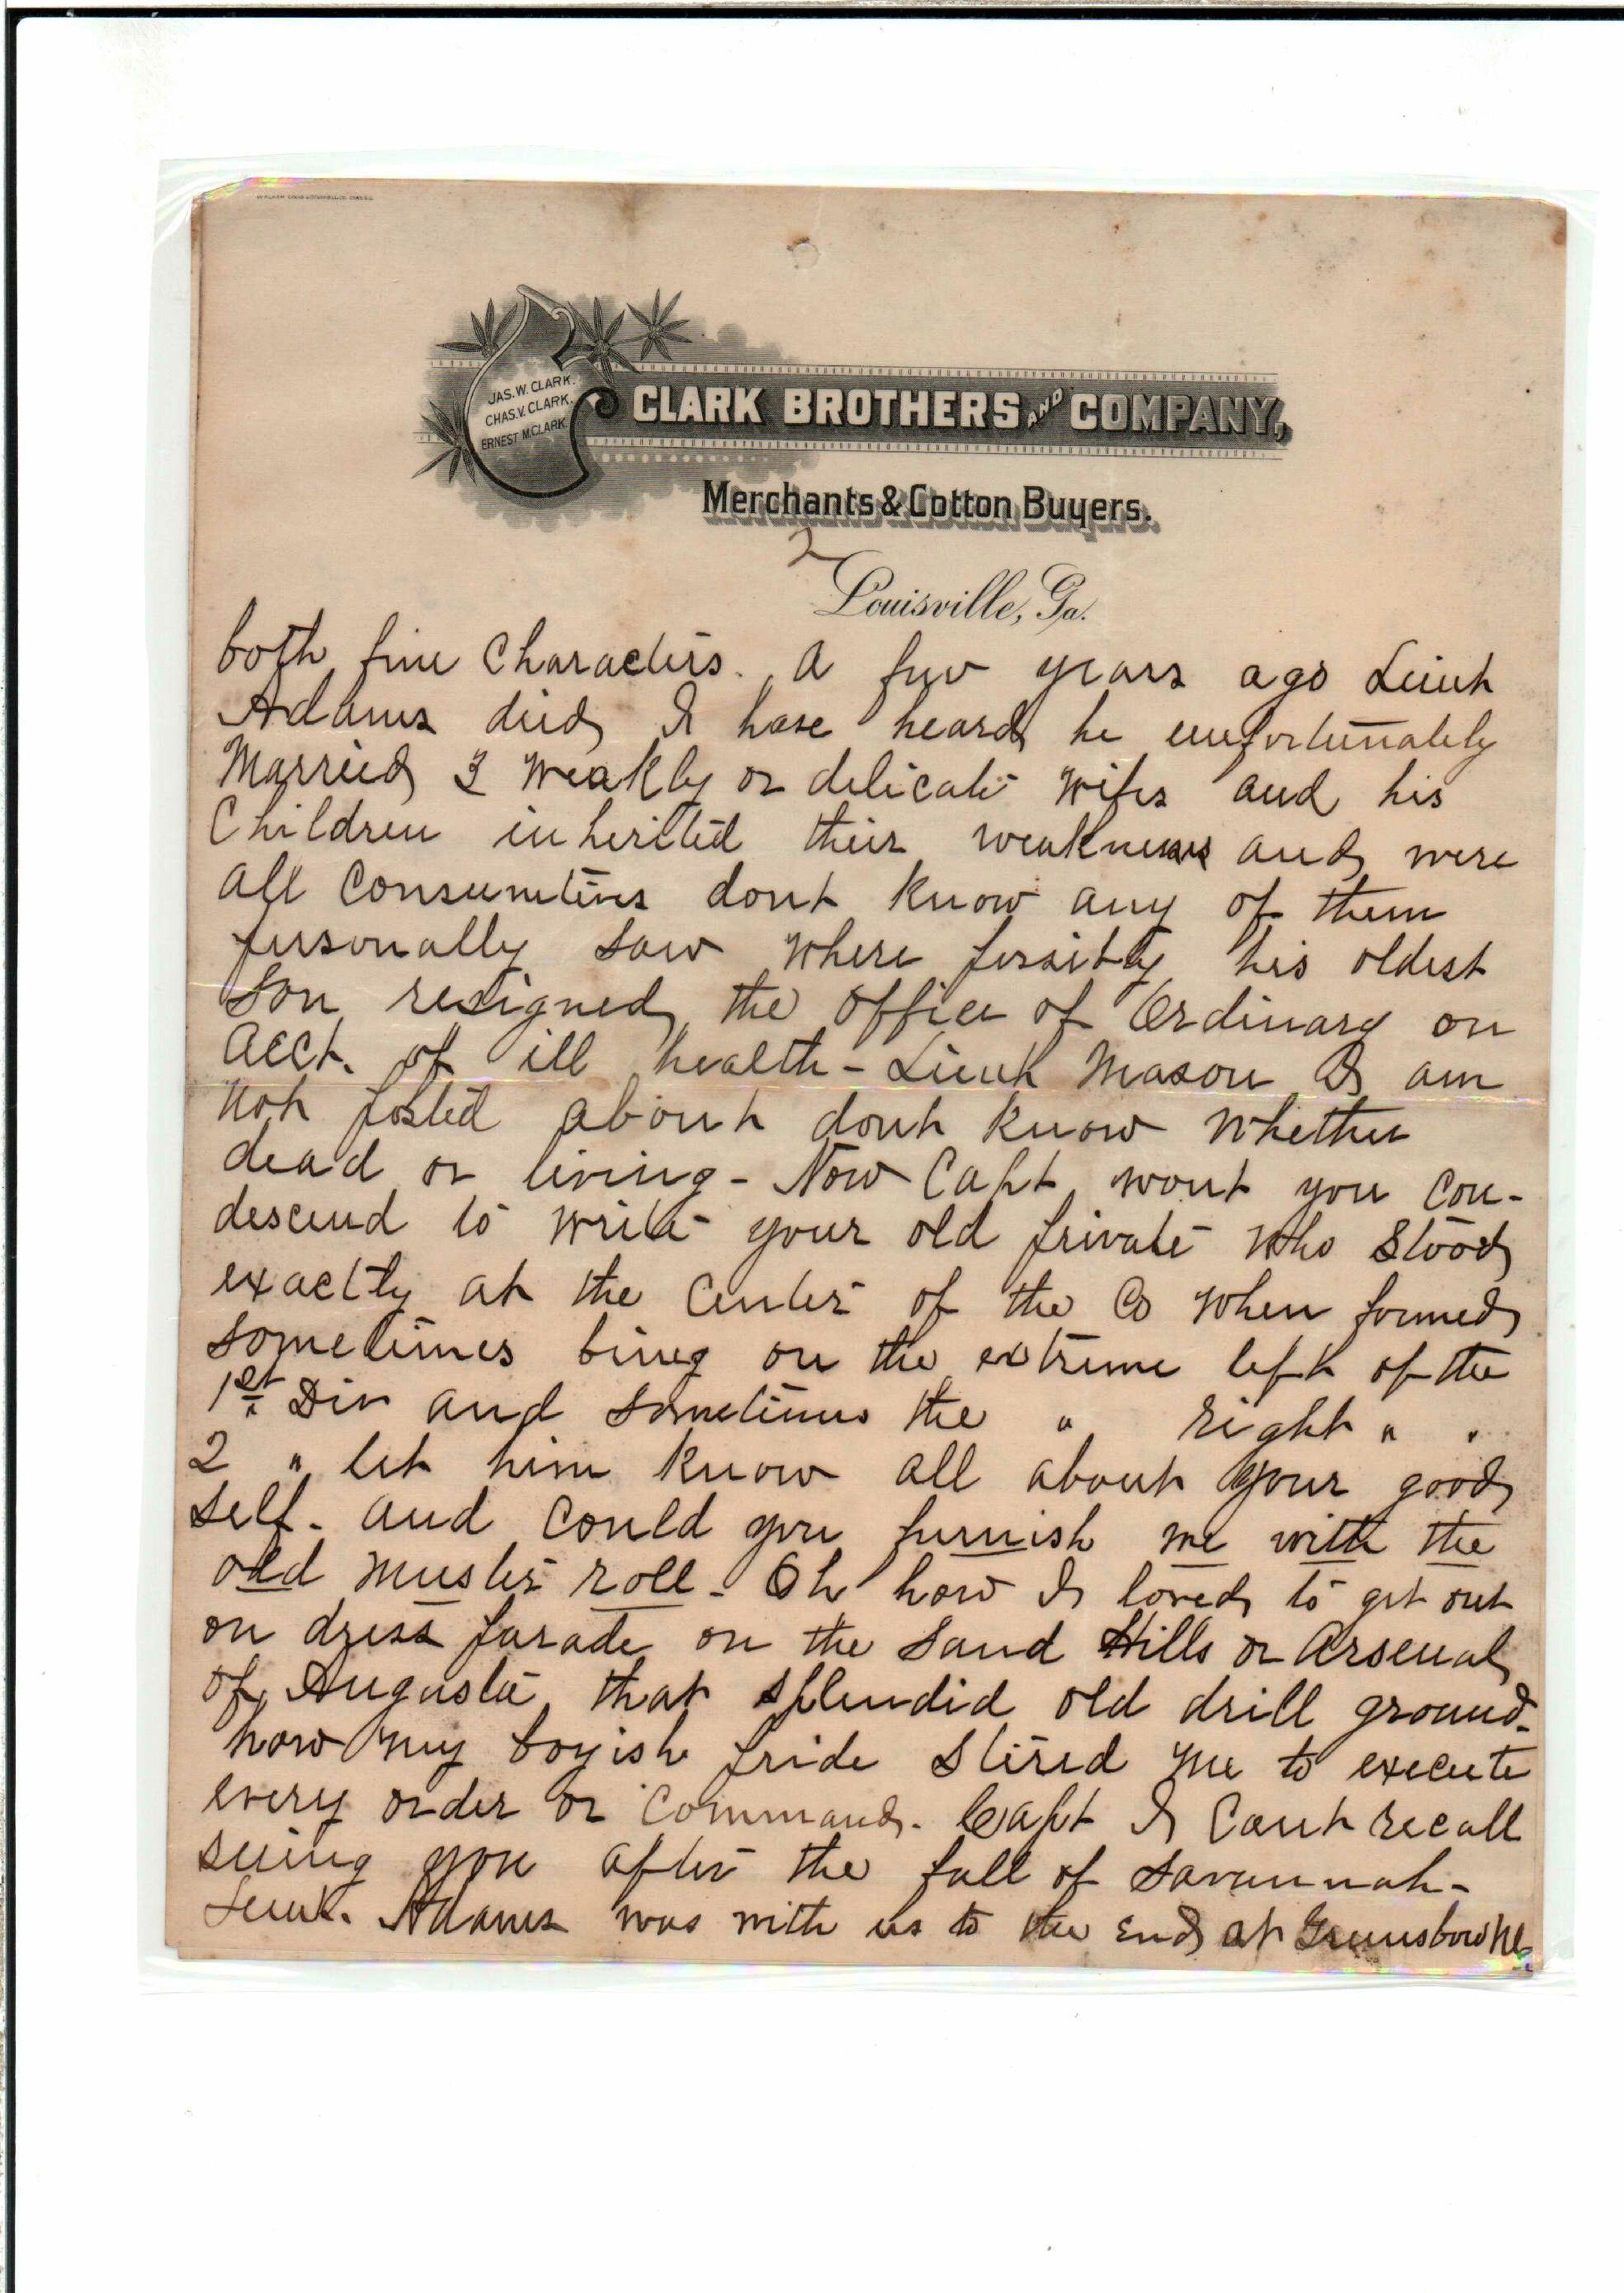 JAS. W. CLARK.
CHAS. V. CLARK.
ERNEST M. CLARK.
CLARK BROTHERS AND COMPANY,
Merchants & Cotton Buyers.
2
Louisville, Ga.
both fine Characters. A few years ago Lieut
Adams died, I have heard he unfortunately
Married 3 weakly or delicate wifes and his
Children inherited their weakness and were
all Consumtives dont know any of them
personally saw where possibly his oldest
Son resigned the office of Ordinary on
acct. of ill health - Lieut Mason I am
not posted about dont know whether
dead or living - Now Capt wont you con-
descend to write your old private who stood
exactly at the Center of the Co when formed
sometimes being on the extreme left of the
1st Div and sometimes the " right " "
2 " let him know all about your good
self - and could you furnish me with the
old muster roll - Oh how I loved to get out
on dress parade on the Sand Hills or Arsenal
of Augusta that splendid old drill ground -
how my boyish pride stired me to execute
every order or Command. Capt I Cant recall
seeing you after the fall of Savannah -
Lieut. Adams was with us to the End at Greensboro NC